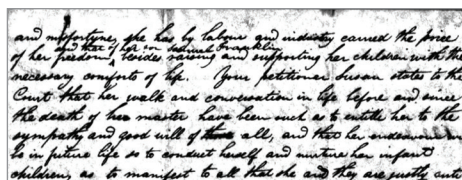 and misfortune, she has by labour and industry earned the price
and that of her son Samuel Franklin
of her freedom, besides raising and supporting her children with the
necessary comforts of life. Your petitioner Susan states to the
Court that her walk and conversation in life before and since
the death of her master have been such as to entitle her to the
sympathy and good will of all, and that her endeavour
is in future life so to conduct herself and nurture her infant
children, as to manifest to all that she and they are justly